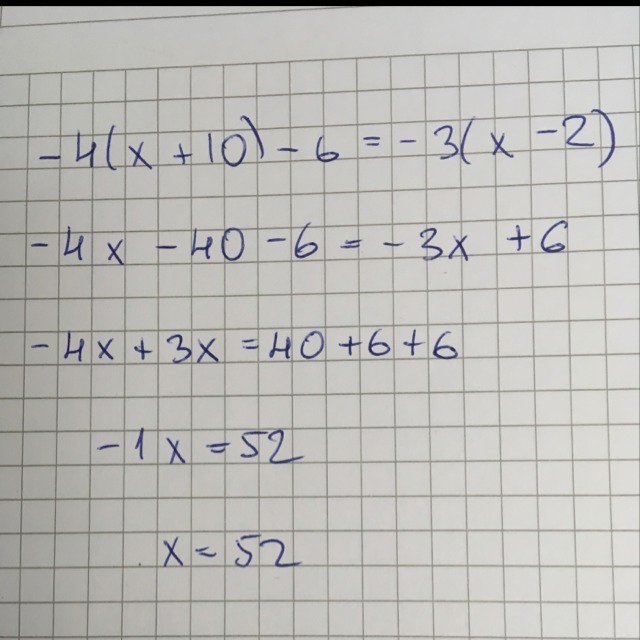 -4(x + 10) - 6 = -3(x - 2)
-4x - 40 - 6 = -3x + 6
-4x + 3x = 40 + 6 + 6
-1x = 52
x = 52